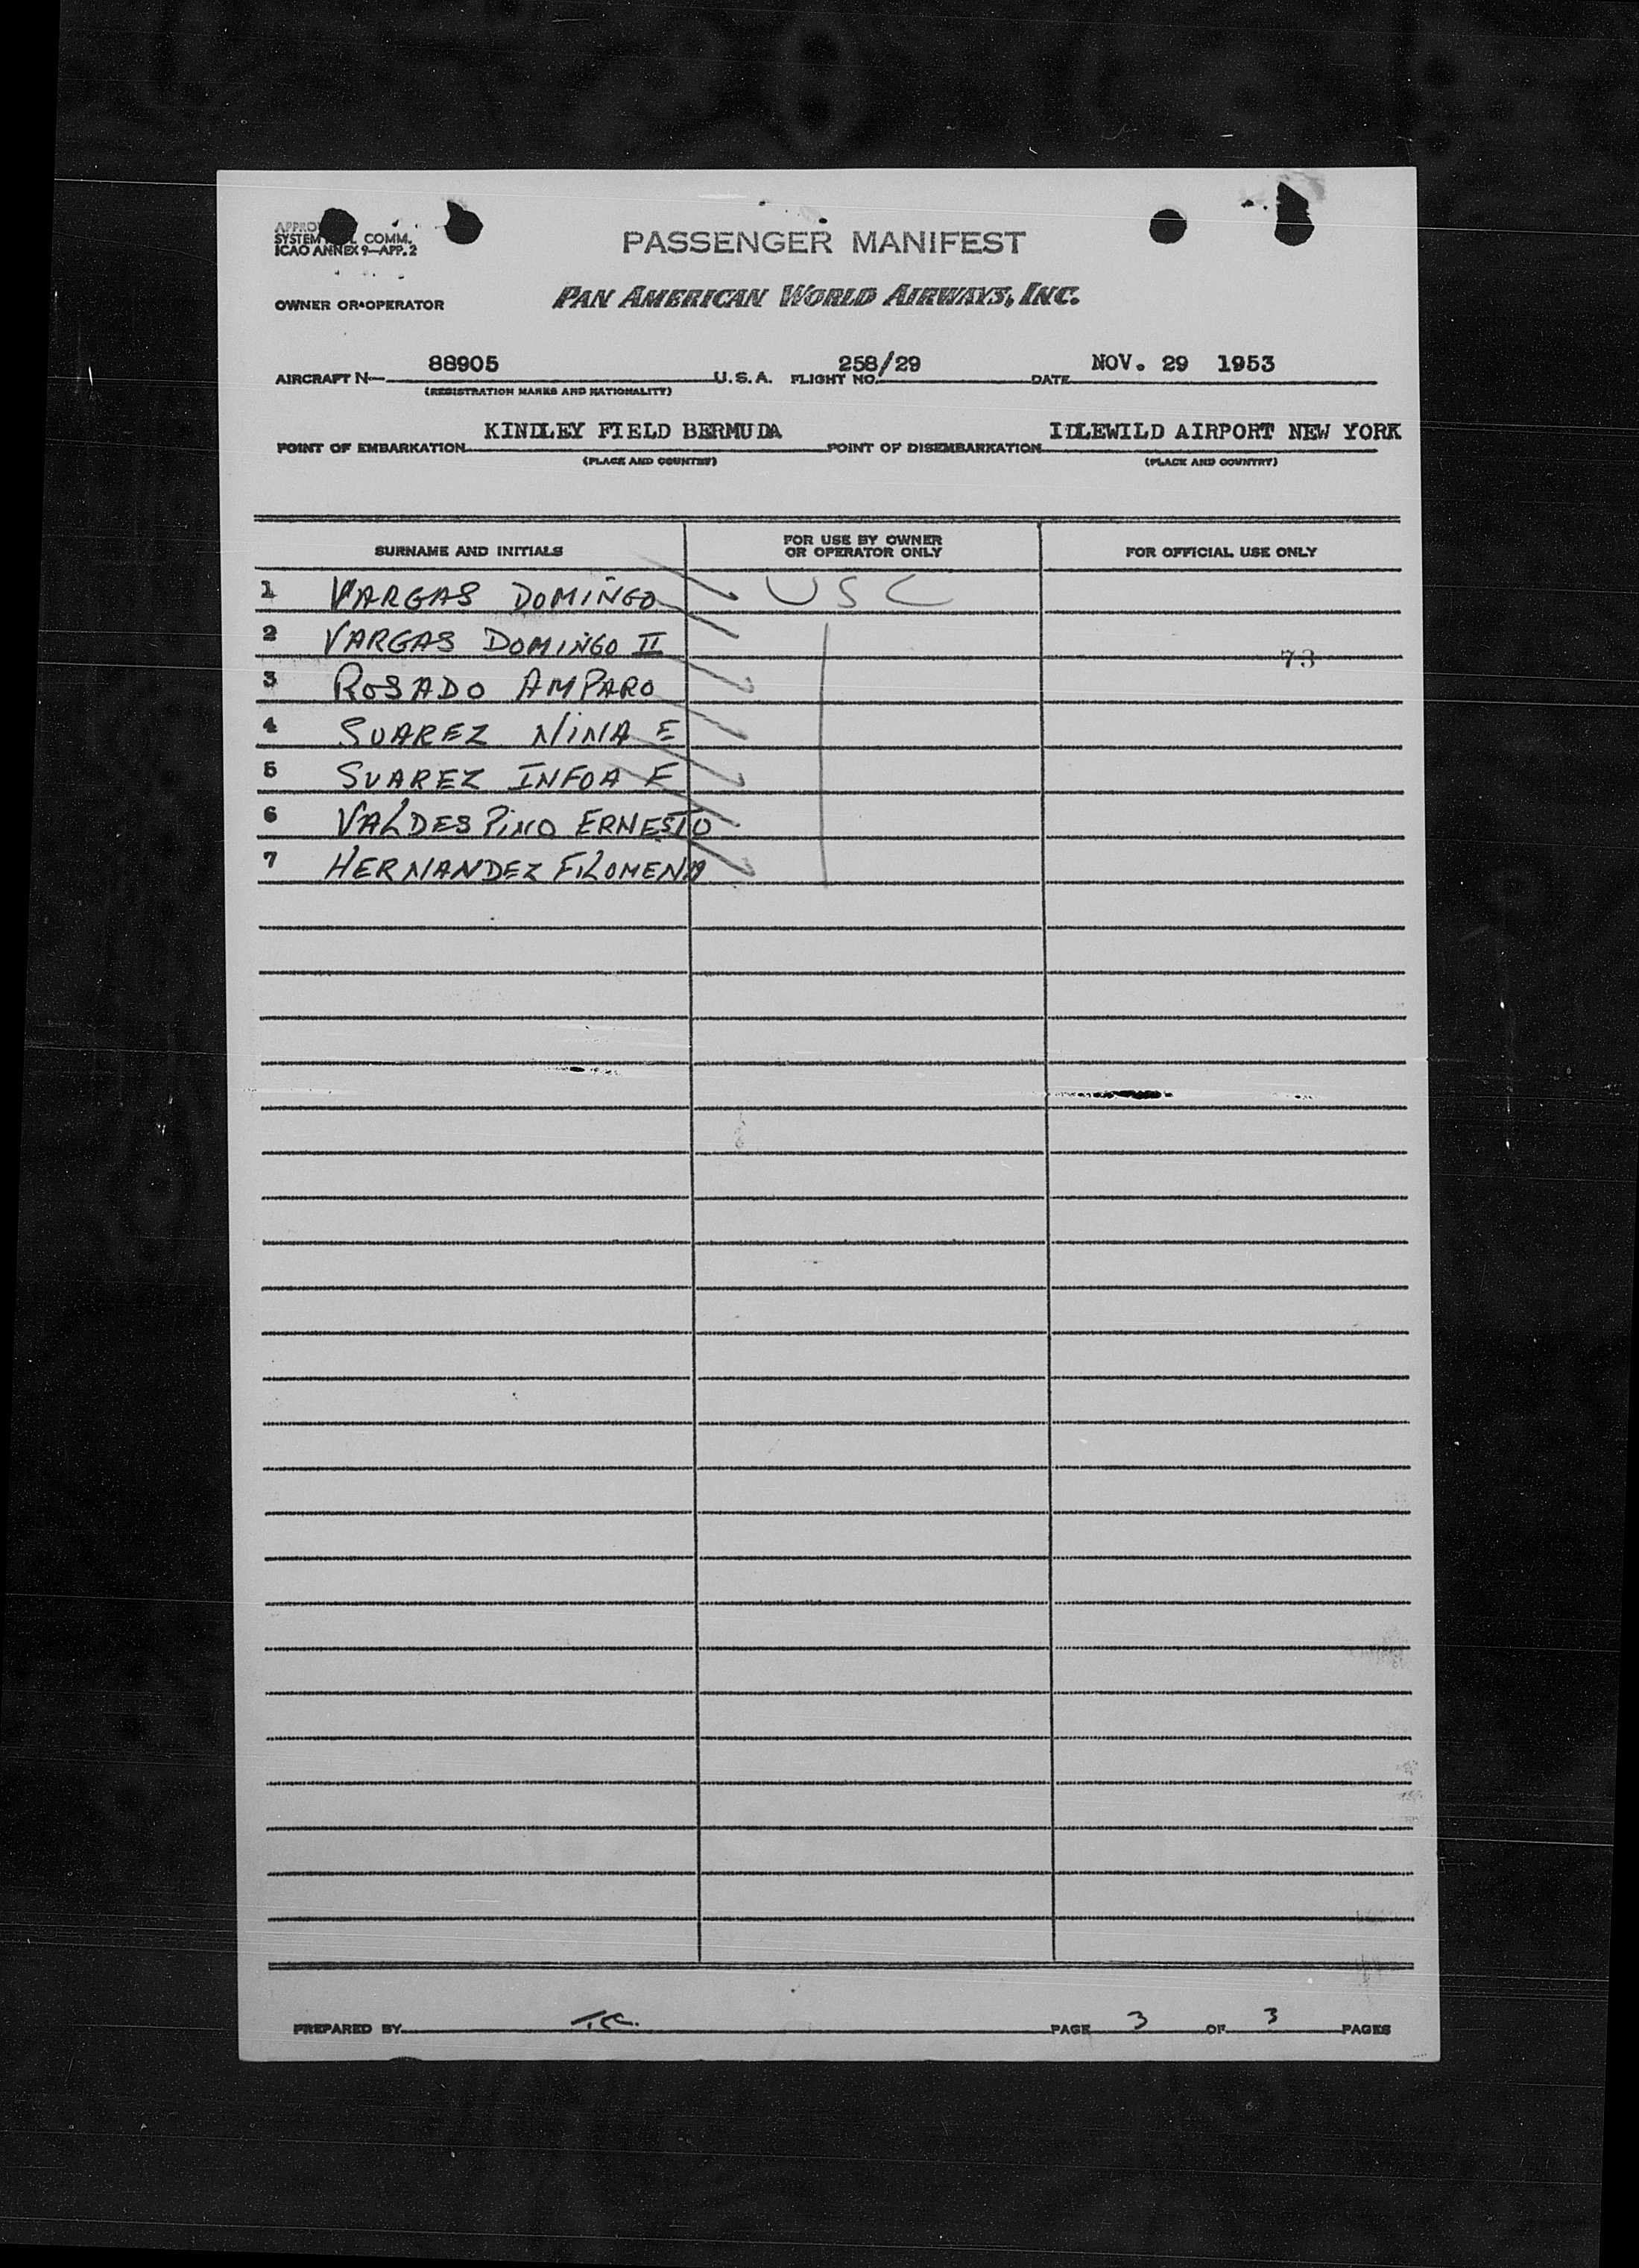 PASSENGER MANIFEST
SYSTEM COMM.
ICAO ANNEX 9—APP. 2
OWNER OR OPERATOR PAN AMERICAN WORLD AIRWAYS, INC.
AIRCRAFT N— 88905 U.S.A. FLIGHT NO. 258/29 DATE NOV. 29 1953
(REGISTRATION MARKS AND NATIONALITY)
POINT OF EMBARKATION KINDLEY FIELD BERMUDA POINT OF DISEMBARKATION IDLEWILD AIRPORT NEW YORK
(PLACE AND COUNTRY) (PLACE AND COUNTRY)
SURNAME AND INITIALS FOR USE BY OWNER OR OPERATOR ONLY FOR OFFICIAL USE ONLY
1 VARGAS DOMINGO USC
2 VARGAS DOMINGO II 73
3 ROSADO AMPARO
4 SUAREZ NINA E
5 SUAREZ INFOA E
6 VALDES PINO ERNESTO
7 HERNANDEZ FILOMENA
PREPARED BY PAGE 3 OF 3 PAGES